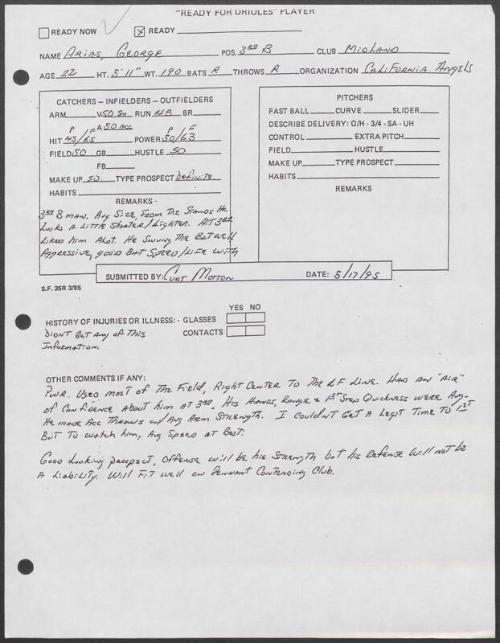 "READY FOR ORIOLES" PLAYER
READY NOW X READY
NAME Arias, George POS. 3rd B CLUB Midland
AGE 22 HT. 5'11" WT. 190 BATS R THROWS R ORGANIZATION California Angels
CATCHERS - INFIELDERS - OUTFIELDERS
ARM RUN BR
P F A 50 P F
HIT 45/55 POWER 50/63
FIELD 50 GB HUSTLE 50
FB
MAKE UP 50 TYPE PROSPECT Definite
HABITS
REMARKS -
3rd B man. Avg Size, From The Stands He
Looks A Little Shorter/Lighter. At 3rd
Liked him Alot. He Swung The Bat well
Aggressive, good Bat Speed/Life with
PITCHERS
FAST BALL CURVE SLIDER
DESCRIBE DELIVERY: O/H - 3/4 - SA - UH
CONTROL EXTRA PITCH
FIELD HUSTLE
MAKE UP TYPE PROSPECT
HABITS
REMARKS
SUBMITTED BY: Curt Motton DATE: 5/17/95
S.F. 35R 3/85
YES NO
HISTORY OF INJURIES OR ILLNESS: - GLASSES
CONTACTS
Didn't Get Any of This
Information.
OTHER COMMENTS IF ANY:
Pwr. Used most of The Field, Right Center To The LF Line. Had An "Air"
of Confidence About him At 3rd. His Hands, Range & 1st Step Quickness were Avg.
He made All Throws w/ Avg Arm Strength. I Couldn't Get A Legit Time To 1st
But To watch him, Avg Speed at Best.
Good Looking prospect, Offense will be his Strength but his Defense Will not be
A Liability. Will Fit well on Pennant Contending Club.